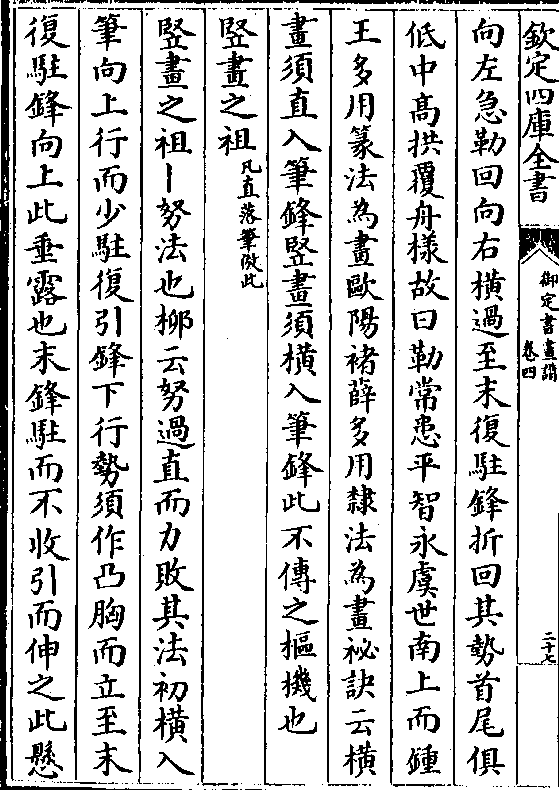 欽定四庫全書
御定書畫譜
卷四
二十七
向左急勒回向右橫過至末復駐鋒折回其勢首尾俱
低中高拱覆舟樣故曰勒常患平智永虞世南上而鍾
王多用篆法為畫歐陽褚薛多用隸法為畫祕訣云橫
畫須直入筆鋒竪畫須橫入筆鋒此不傳之樞機也
竪畫之祖凡直落筆倣此
竪畫之祖丨努法也柳云努過直而力敗其法初橫入
筆向上行而少駐復引鋒下行勢須作凸胸而立至末
復駐鋒向上此垂露也末鋒駐而不收引而伸之此懸